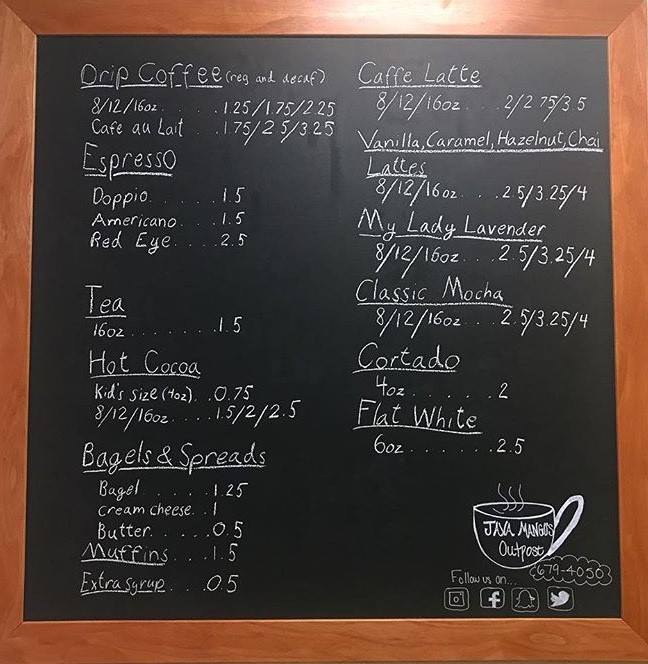 Drip Coffee (reg and decaf)
8/12/16oz......1.25/1.75/2.25
Cafe au Lait...1.75/2.5/3.25
Espresso
Doppio......1.5
Americano....1.5
Red Eye....2.5
Tea
16oz.......1.5
Hot Cocoa
Kid's size (4oz)..0.75
8/12/16oz....1.5/2/2.5
Bagels & Spreads
Bagel......1.25
cream cheese..1
Butter......0.5
Muffins...1.5
Extra syrup...0.5
Caffe Latte
8/12/16oz...2/2.75/3.5
Vanilla, Caramel, Hazelnut, Chai
Lattes
8/12/16oz...2.5/3.25/4
My Lady Lavender
8/12/16oz...2.5/3.25/4
Classic Mocha
8/12/16oz...2.5/3.25/4
Cortado
4oz......2
Flat White
6oz......2.5
JAVA MANGO'S
Outpost
679-4050
Follow us on...